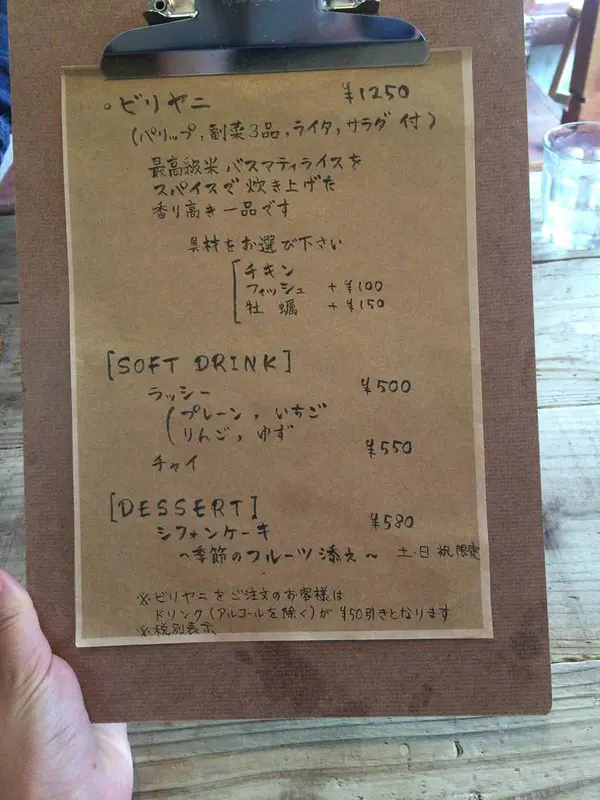 ・ビリヤニ ¥1250
(パリップ,副菜3品,ライタ,サラダ 付)
最高級米 バスマティライスを
スパイスで 炊き上げた
香り高き 一品です
具材をお選び下さい
チキン
フィッシュ +¥100
牡 蠣 +¥150
[SOFT DRINK]
ラッシー ¥500
(プレーン, いちご
りんご, ゆず
チャイ ¥550
[DESSERT]
シフォンケーキ ¥580
~季節のフルーツ添え~ 土・日 祝 限定
※ビリヤニをご注文のお客様は
ドリンク(アルコールを除く)が ¥50引きとなります
※税別表示